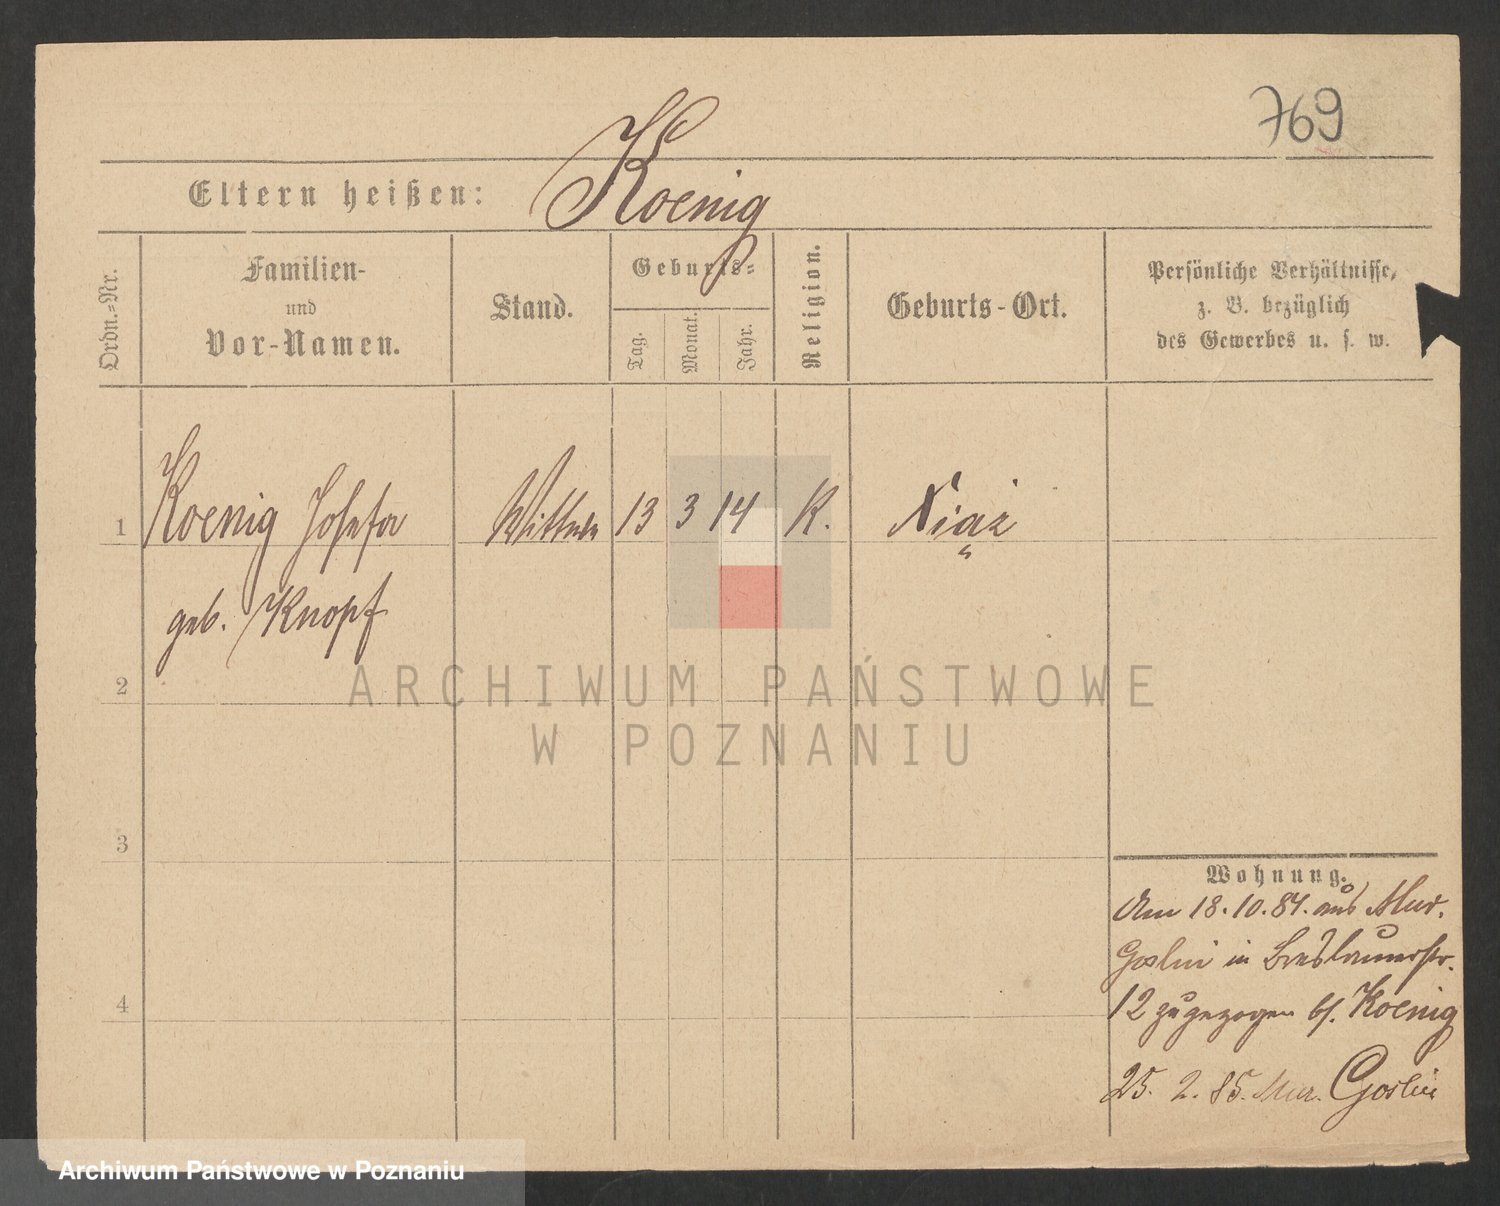 769
Eltern heißen: Koenig
Ordn.-Nr.
Familien-
und
Vor-Namen.
Stand.
Geburts-
Tag.
Monat.
Jahr.
Religion.
Geburts-Ort.
Persönliche Verhältnisse,
z. B. bezüglich
des Gewerbes u. s. w.
1 Koenig Josefa Wittwe 13 3 14 K. Xiąż
geb. Knopf
2
ARCHIWUM PAŃSTWOWE
W POZNANIU
3
Wohnung.
Am 18.10.84. aus Mur.
Goslin in Breslauerstr.
12 zugezogen bs. Koenig
4
25. 2. 85. Mur. Goslin
Archiwum Państwowe w Poznaniu